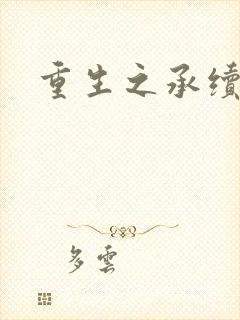 重生之承續
多雲